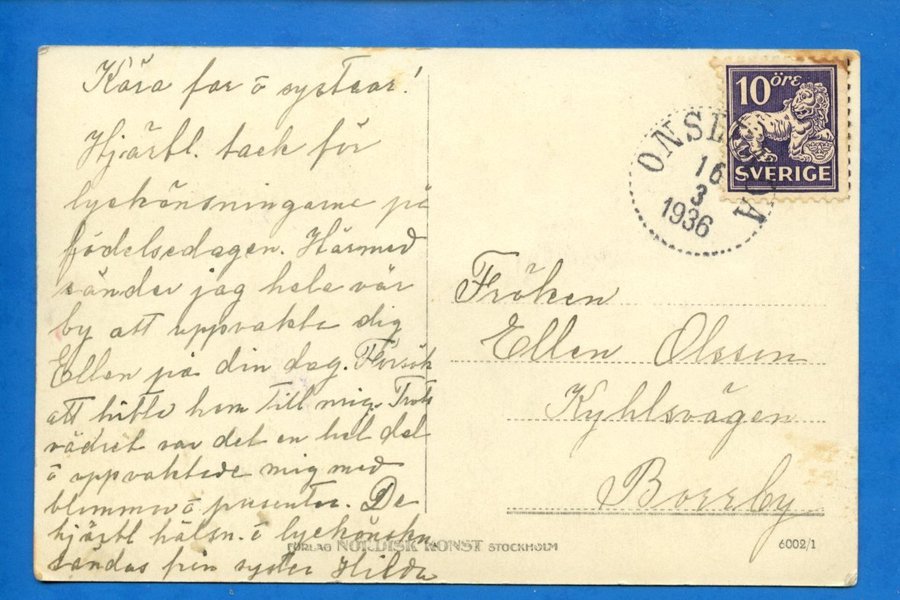 Kära far o systrar!
Hjärtl. tack för
lyckönsningarne på
födelsedagen. Härmed
sänder jag hela vår
by att uppvakta dig
Ellen på din dag. Försök
att hitta hem till mig. Trots
vädret var det en hel del
o uppvaktade mig med
blommor o presenter. De
hjärtl hälsn. o lyckönskn
sändas från syster Hilda
10 ÖRE
SVERIGE
ONSL
A
16
3
1936
Fröken
Ellen Olssen
Kyhlsvägen
Borrby
FÖRLAG NORDISK KONST STOCKHOLM
6002/1